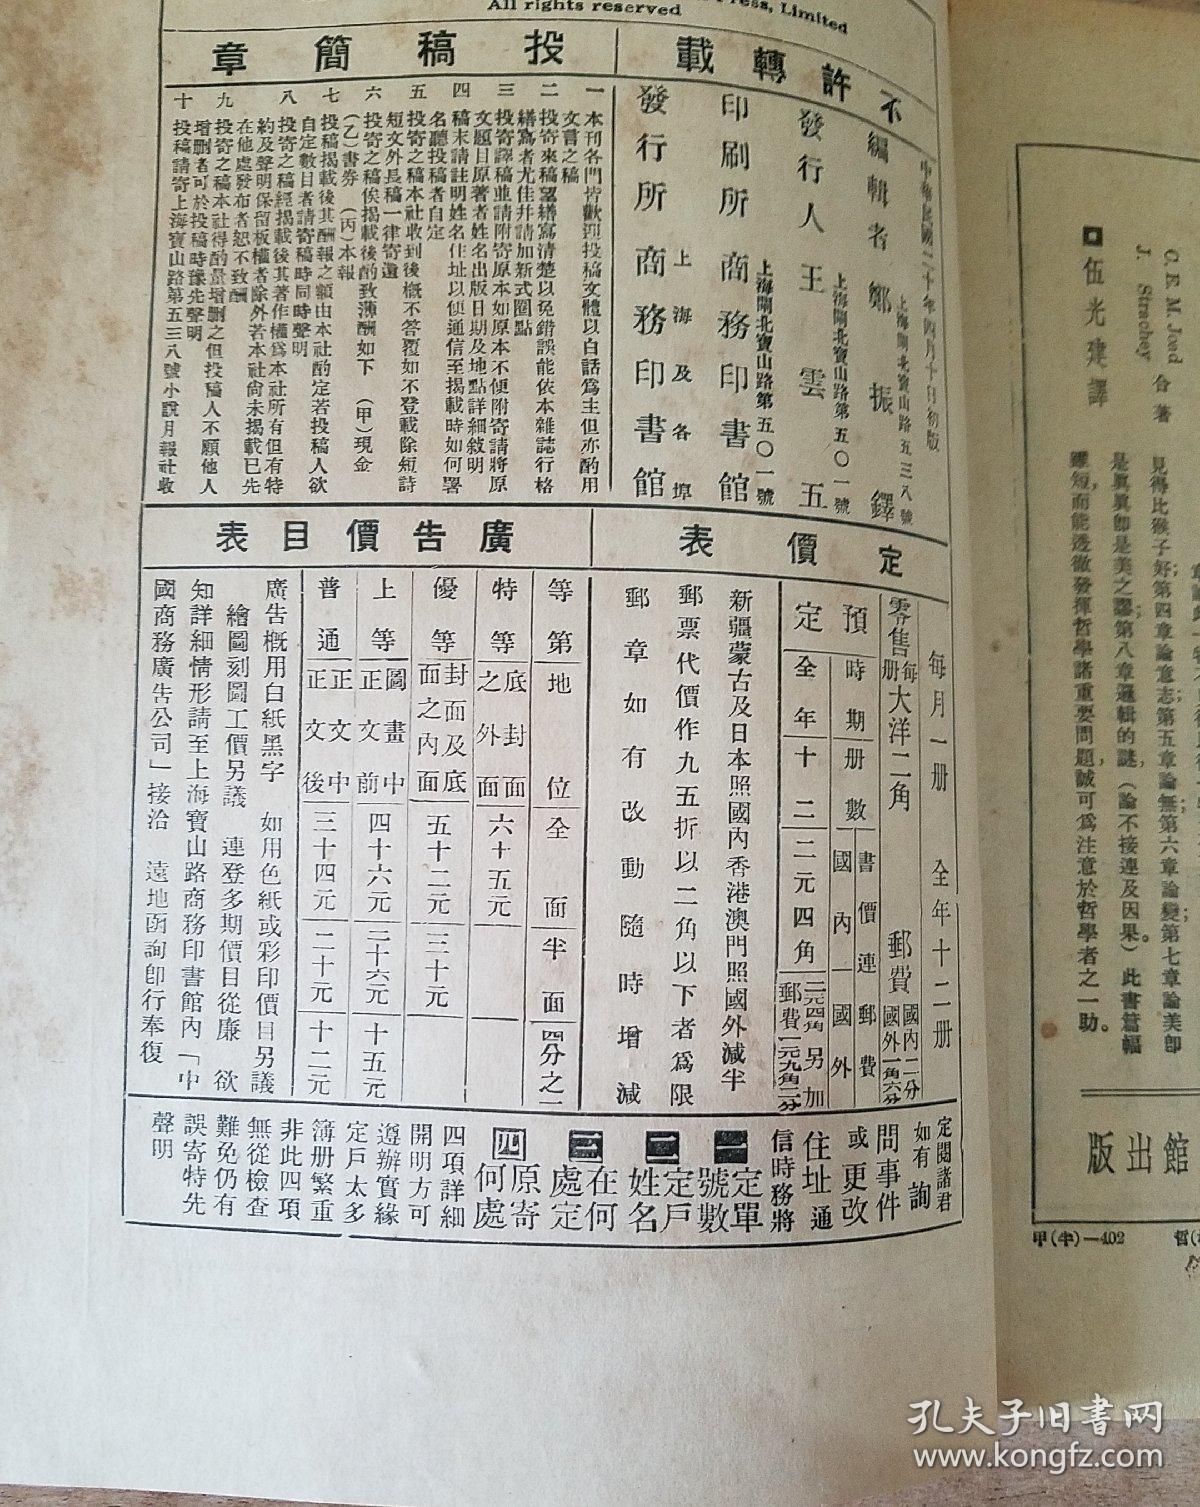 Press, Limited
All rights reserved
不許轉載
中華民國二十年四月十日初版
編輯者 鄭振鐸
上海閘北寶山路五三八號
發行人 王雲五
上海閘北寶山路第五〇一號
印刷所 商務印書館
上海閘北寶山路第五〇一號
發行所 商務印書館
上海及各埠
投稿簡章
一 本刊各門皆歡迎投稿文體以白話爲主但亦酌用
文言之稿
二 投寄來稿望繕寫清楚以免錯誤能依本雜誌行格
繕寫者尤佳并請加新式圈點
三 投寄譯稿並請附寄原本如原本不便附寄請將原
文題目原著者姓名出版日期及地點詳細敍明
四 稿末請註明姓名住址以便通信至揭載時如何署
名聽投稿者自定
五 投寄之稿本社收到後概不答覆如不登載除短詩
短文外長稿一律寄還
六 投寄之稿俟揭載後酌致薄酬如下 (甲)現金
(乙)書劵 (丙)本報
七 投稿揭載後其酬報之額由本社酌定若投稿人欲
自定數目者請寄稿時同時聲明
八 投寄之稿經揭載後其著作權爲本社所有但有特
約及聲明保留板權者除外若本社尙未揭載已先
在他處發布者恕不致酬
九 投寄之稿本社得酌量增删之但投稿人不願他人
增删者可於投稿時豫先聲明
十 投稿請寄上海寶山路第五三八號小說月報社收
定價表
每月一册 全年十二册
零售 每册 大洋二角 郵費 國內二分 國外一角六分
預定 時期 册數 書價連郵費
國內 國外
全年 十二 二元四角 二元四角另加郵費一元九角二分
新疆蒙古及日本照國內香港澳門照國外減半
郵票代價作九五折以二角以下者爲限
郵章如有改動隨時增減
廣告價目表
等第 地位 全面 半面 四分之一
特等 底封面之外面 六十五元
優等 封面及底面之內面 五十二元 三十元
上等 圖畫中正文前 四十六元 二十六元 十五元
普通 正文中正文後 三十四元 二十元 十二元
廣告概用白紙黑字 如用色紙或彩印價目另議
繪圖刻圖工價另議 連登多期價目從廉 欲
知詳細情形請至上海寶山路商務印書館內「中
國商務廣吿公司」接洽 遠地函詢卽行奉復
定閱諸君
如有詢
問事件
或更改
住址通
信時務將
一 定單號數
二 定戶姓名
三 在何處定
四 原寄何處
四項詳細
開明方可
遵辦實緣
定戶太多
簿册繁重
非此四項
無從檢查
難免仍有
誤寄特先
聲明
C. E. M. Joad
J. Strachey 合著
伍光建譯
見得比猴子好;第四章論意志;第五章論無;第六章論變;第七章論美卽
是眞眞卽是美之謬;第八章邏輯的謎,(論不接連及因果)。此書篇幅
雖短,而能透徹發揮哲學諸重要問題,誠可爲注意於哲學者之一助。
館出版
甲(半)—402
孔夫子旧书网
www.kongfz.com